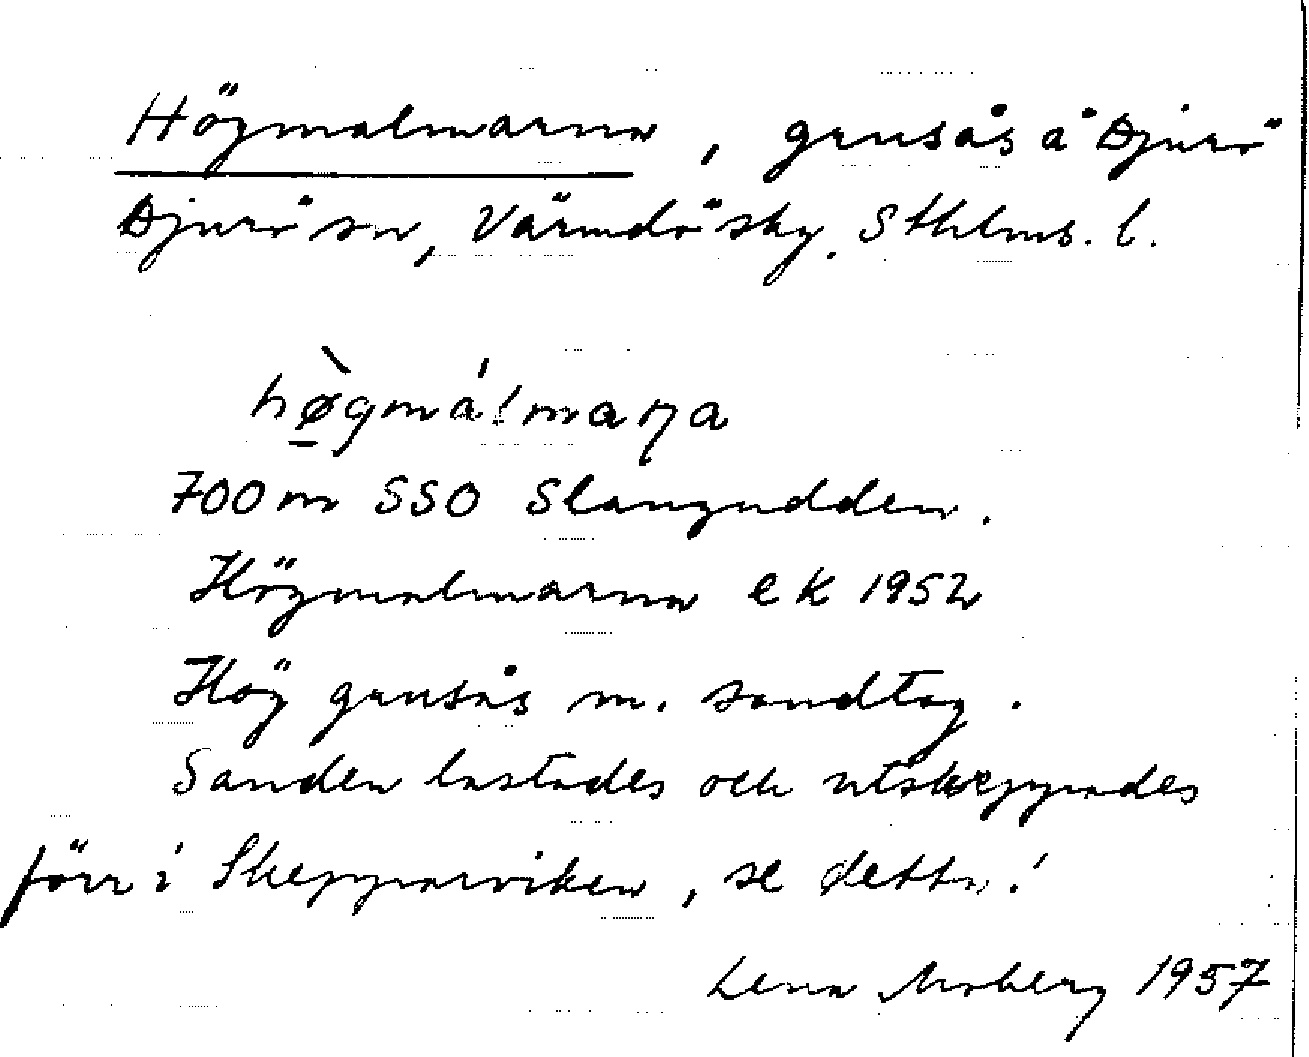 Högmalmarna, grusås å Djurö
Djurö sn, Värmdö sky. Sthlms. l.
hø̲̀gmá!maꞃa
700 m SSO Slangudden.
Högmalmarna ek 1952
Hög grusås m. sandtag.
Sanden lastades och utskeppades
förr i Skepparviken, se detta!
Lena Moberg 1957